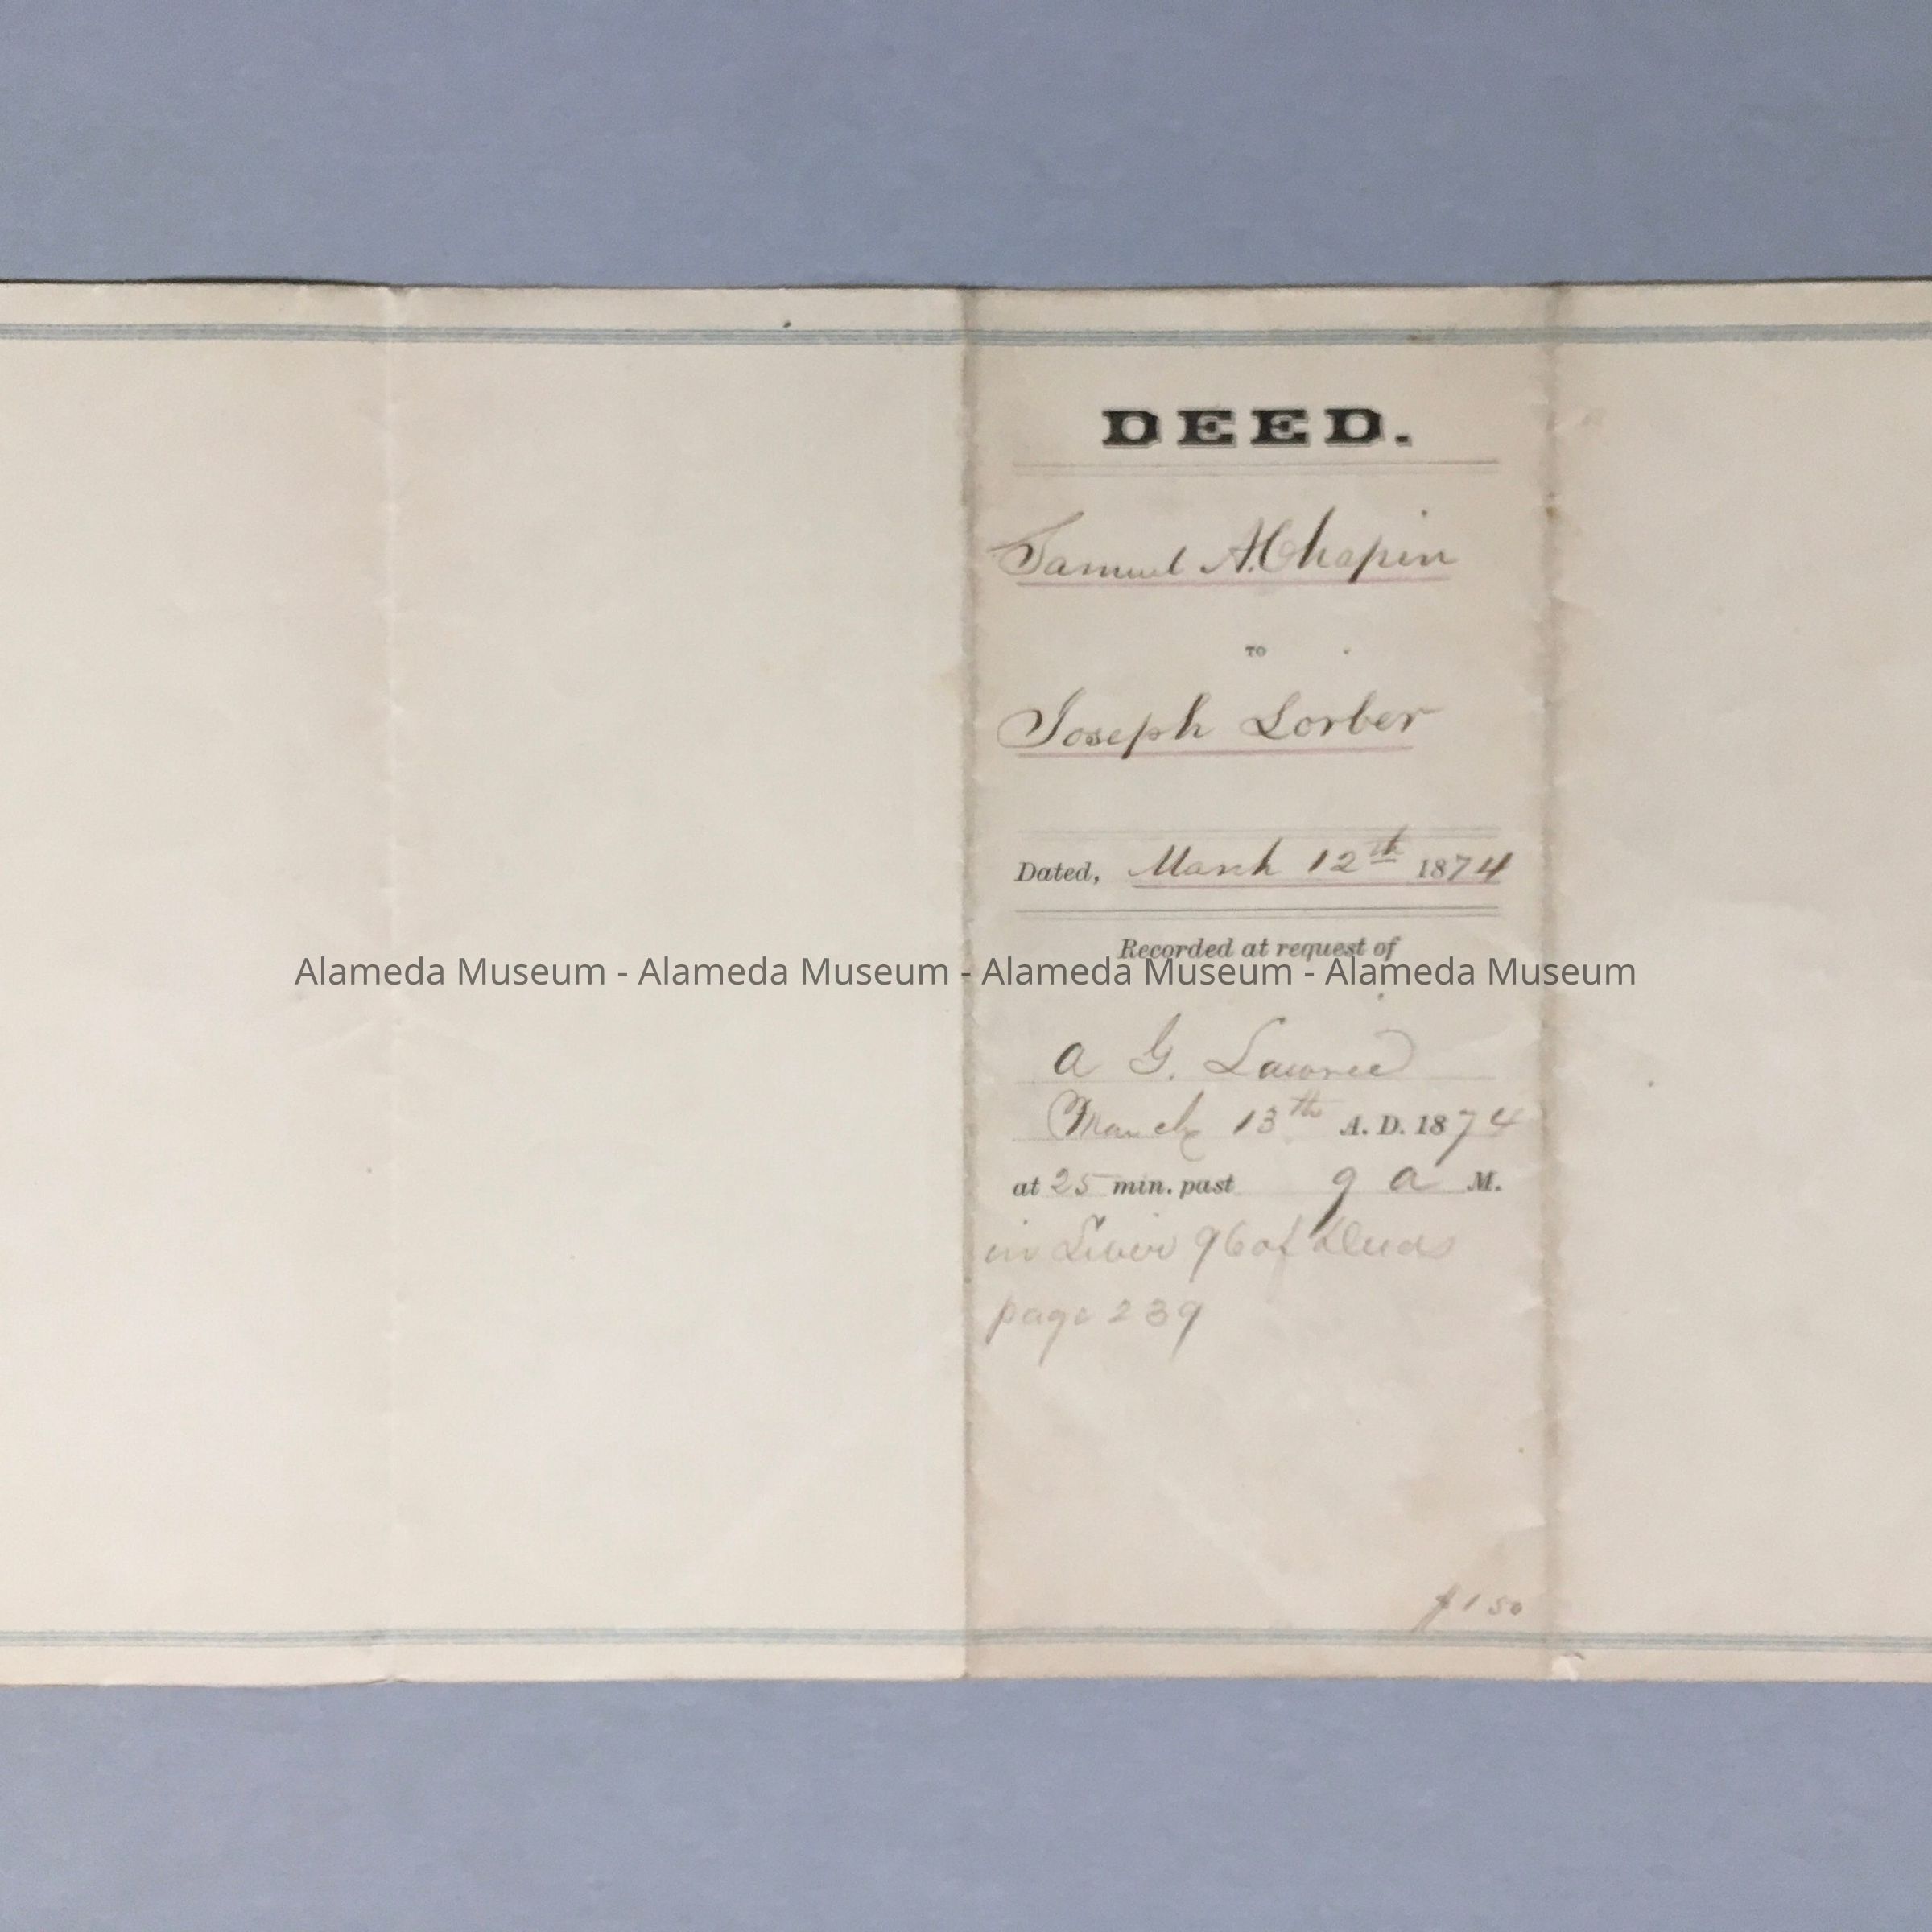 DEED.
Samuel A. Chapin
TO
Joseph Lorber
Dated, March 12th 1874
Recorded at request of
Alameda Museum - Alameda Museum - Alameda Museum - Alameda Museum
A G. Lawrie
March 13th A. D. 1874
at 25 min. past 9 a M.
in Liber 96 of Deeds
page 239
$1 50